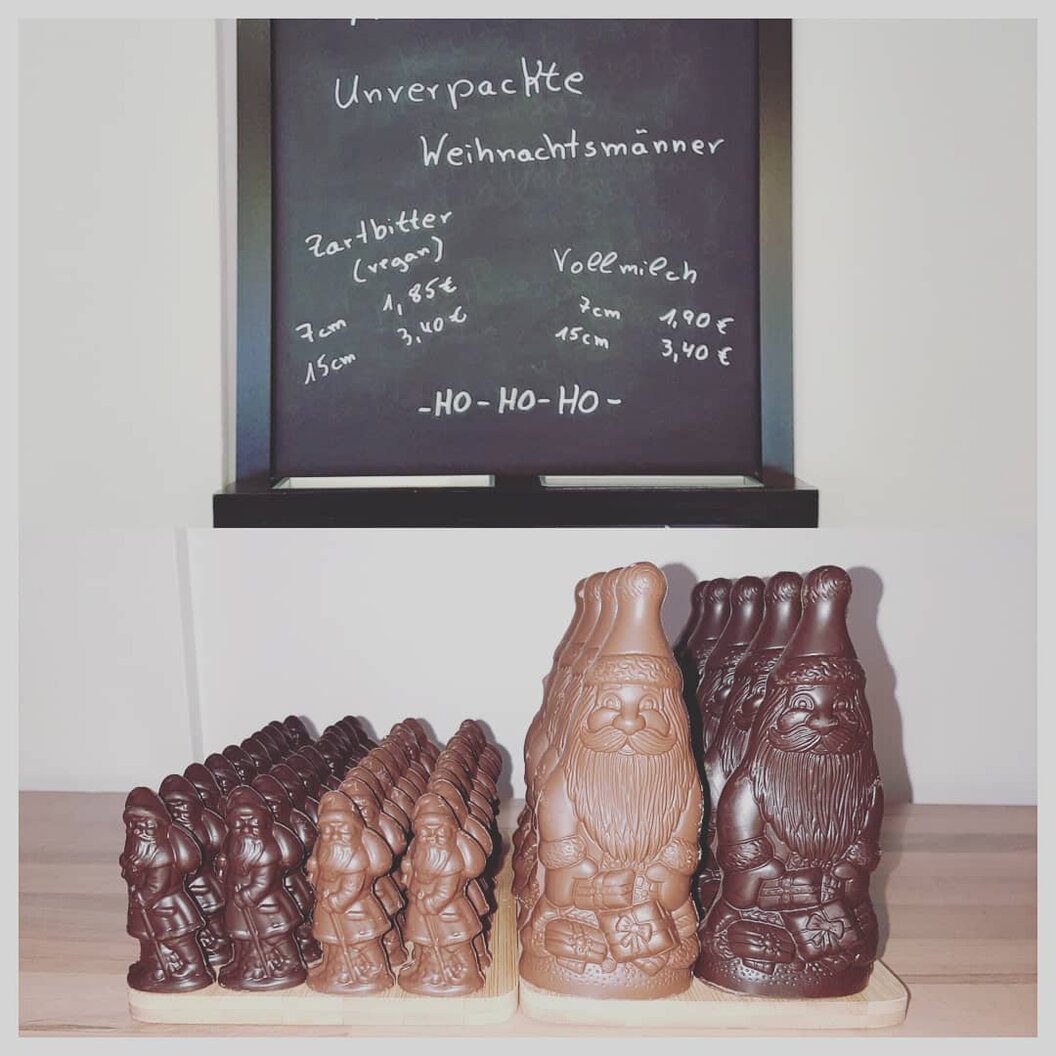 Unverpackte
Weihnachtsmänner
Zartbitter
(vegan)
7cm 1,85€
15cm 3,40€
Vollmilch
7cm 1,90€
15cm 3,40€
-HO-HO-HO-